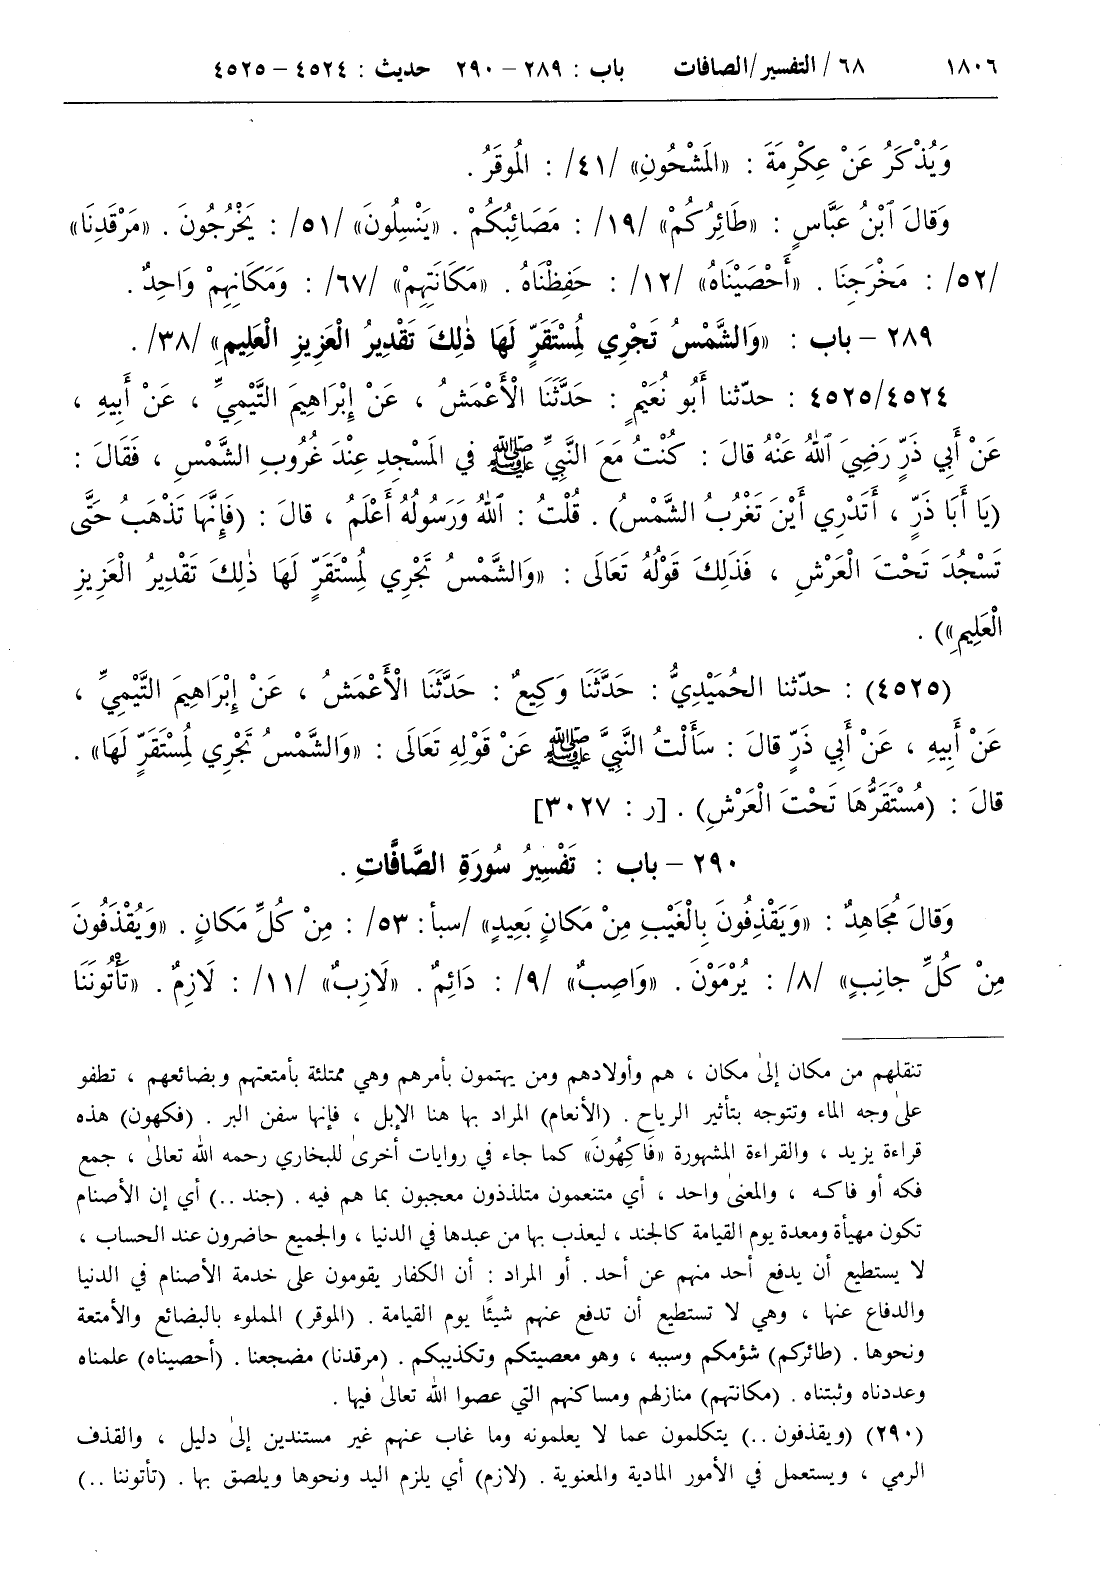 ١٨٠٦ ٦٨/ التفسير/الصافات باب : ٢٨٩ – ٢٩٠ حديث : ٤٥٢٤ – ٤٥٢٥
وَيُذْكَرُ عَنْ عِكْرِمَةَ : «المَشْحُونِ» /٤١/ : المُوقَرُ .
وَقالَ ٱبْنُ عَبَّاسٍ : «طَائِرُكُمْ» /١٩/ : مَصَائِبُكُمْ . «يَنْسِلُونَ» /٥١/ : يَخْرُجُونَ . «مَرْقَدِنَا»
/٥٢/ : مَخْرَجِنَا . «أَحْصَيْنَاهُ» /١٢/ : حَفِظْنَاهُ . «مَكَانَتِهِمْ» /٦٧/ : وَمَكَانِهِمْ وَاحِدٌ .
٢٨٩ – باب : «وَالشَّمْسُ تَجْرِي لِمُسْتَقَرٍّ لَهَا ذٰلِكَ تَقْدِيرُ الْعَزِيزِ الْعَلِيمِ» /٣٨/ .
٤٥٢٥/٤٥٢٤ : حدّثنا أَبُو نُعَيْمٍ : حَدَّثَنَا الْأَعْمَشُ ، عَنْ إِبْرَاهِيمَ التَّيْمِيِّ ، عَنْ أَبِيهِ ،
عَنْ أَبِي ذَرٍّ رَضِيَ ٱللهُ عَنْهُ قالَ : كُنْتُ مَعَ النَّبِيِّ ﷺ في المَسْجِدِ عِنْدَ غُرُوبِ الشَّمْسِ ، فَقَالَ :
(يَا أَبَا ذَرٍّ ، أَتَدْرِي أَيْنَ تَغْرُبُ الشَّمْسُ) . قُلْتُ : ٱللهُ وَرَسُولُهُ أَعْلَمُ ، قالَ : (فَإِنَّهَا تَذْهَبُ حَتَّى
تَسْجُدَ تَحْتَ الْعَرْشِ ، فَذَلِكَ قَوْلُهُ تَعَالَى : «وَالشَّمْسُ تَجْرِي لِمُسْتَقَرٍّ لَهَا ذٰلِكَ تَقْدِيرُ الْعَزِيزِ
الْعَلِيمِ») .
(٤٥٢٥) : حدّثنا الحُمَيْدِيُّ : حَدَّثَنَا وَكِيعٌ : حَدَّثَنَا الْأَعْمَشُ ، عَنْ إِبْرَاهِيمَ التَّيْمِيِّ ،
عَنْ أَبِيهِ ، عَنْ أَبِي ذَرٍّ قالَ : سَأَلْتُ النَّبِيَّ ﷺ عَنْ قَوْلِهِ تَعَالَى : «وَالشَّمْسُ تَجْرِي لِمُسْتَقَرٍّ لَهَا» .
قالَ : (مُسْتَقَرُّهَا تَحْتَ الْعَرْشِ) . [ر : ٣٠٢٧]
٢٩٠ – باب : تَفْسِيرُ سُورَةِ الصَّافَّاتِ .
وَقالَ مُجَاهِدٌ : «وَيَقْذِفُونَ بِالْغَيْبِ مِنْ مَكانٍ بَعِيدٍ» /سبأ: ٥٣/ : مِنْ كُلِّ مَكانٍ . «وَيُقْذَفُونَ
مِنْ كُلِّ جانِبٍ» /٨/ : يُرْمَوْنَ . «وَاصِبٌ» /٩/ : دَائِمٌ . «لَازِبٌ» /١١/ : لَازِمٌ . «تَأْتُونَنَا
تنقلهم من مكان إلىٰ مكان ، هم وأولادهم ومن يهتمون بأمرهم وهي ممتلئة بأمتعتهم وبضائعهم ، تطفو
علىٰ وجه الماء وتتوجه بتأثير الرياح . (الأنعام) المراد بها هنا الإبل ، فإنها سفن البر . (فكهون) هذه
قراءة يزيد ، والقراءة المشهورة «فَاكِهُونَ» كما جاء في روايات أخرىٰ للبخاري رحمه الله تعالىٰ ، جمع
فكه أو فاكه ، والمعنىٰ واحد ، أي متنعمون متلذذون معجبون بما هم فيه . (جند ..) أي إن الأصنام
تكون مهيأة ومعدة يوم القيامة كالجند ، ليعذب بها من عبدها في الدنيا ، والجميع حاضرون عند الحساب ،
لا يستطيع أن يدفع أحد منهم عن أحد . أو المراد : أن الكفار يقومون على خدمة الأصنام في الدنيا
والدفاع عنها ، وهي لا تستطيع أن تدفع عنهم شيئًا يوم القيامة . (الموقر) المملوء بالبضائع والأمتعة
ونحوها . (طائركم) شؤمكم وسببه ، وهو معصيتكم وتكذيبكم . (مرقدنا) مضجعنا . (أحصيناه) علمناه
وعددناه وثبتناه . (مكانتهم) منازلهم ومساكنهم التي عصوا الله تعالىٰ فيها .
(٢٩٠) (ويقذفون ..) يتكلمون عما لا يعلمونه وما غاب عنهم غير مستندين إلىٰ دليل ، والقذف
الرمي ، ويستعمل في الأمور المادية والمعنوية . (لازم) أي يلزم اليد ونحوها ويلصق بها . (تأتوننا ..)